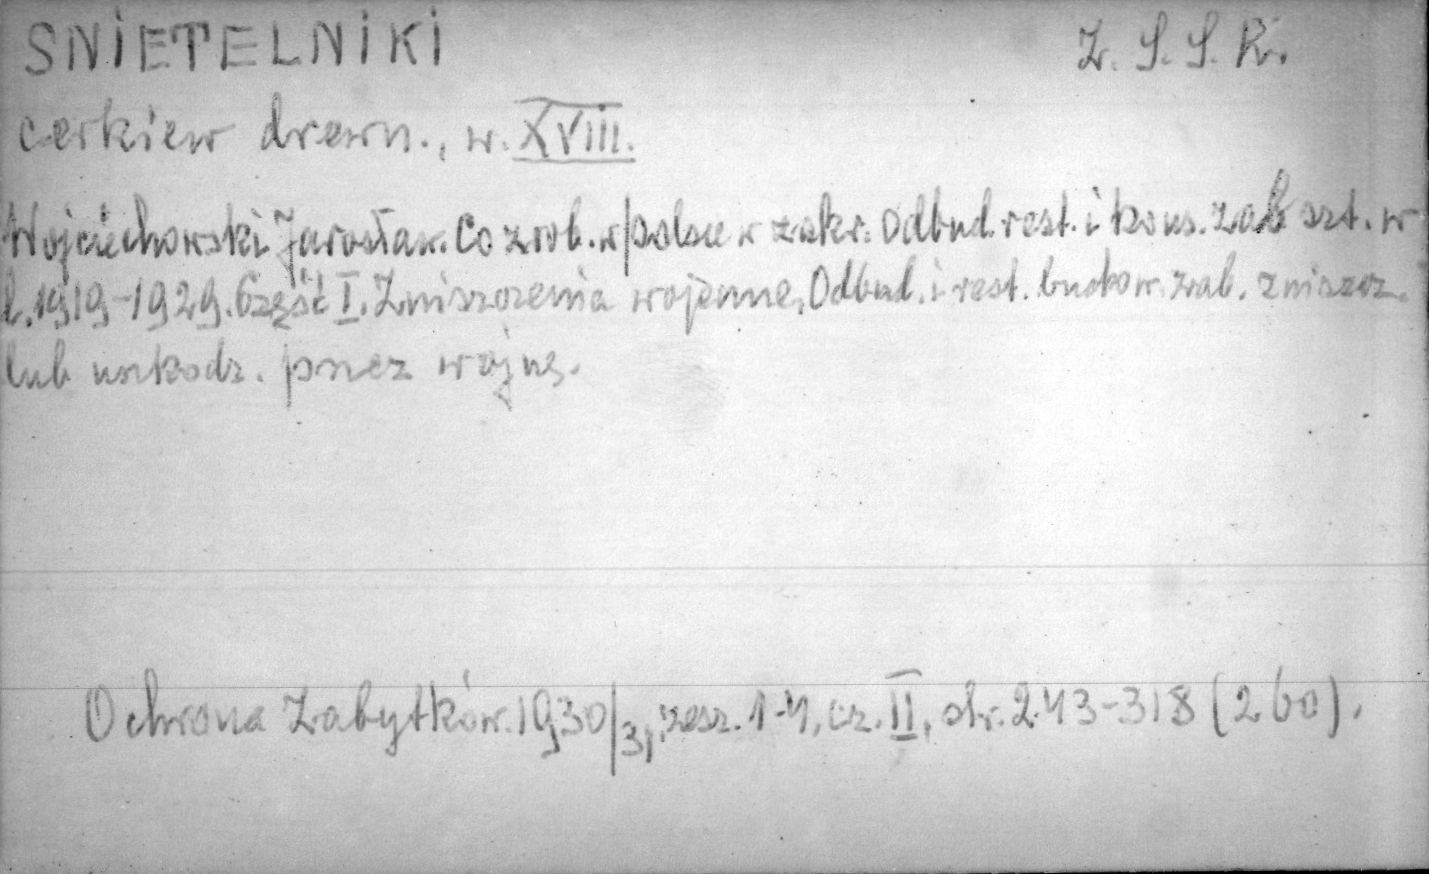 SNIETELNIKI Z. S. S. R.
cerkiew drewn., w. XVIII.
Wojciechowski Jarosław. Co zrob. w Polsce w zakr. Odbud. rest. i kons. zab szt. w
l. 1919-1929. Część I. Zniszczenia wojenne, Odbud. i rest. budow. zab. zniszcz.
lub uszkodz. przez wojnę.
Ochrona Zabytków. 1930/31, zesz. 1-4, cz. II, str. 243-318 (260).